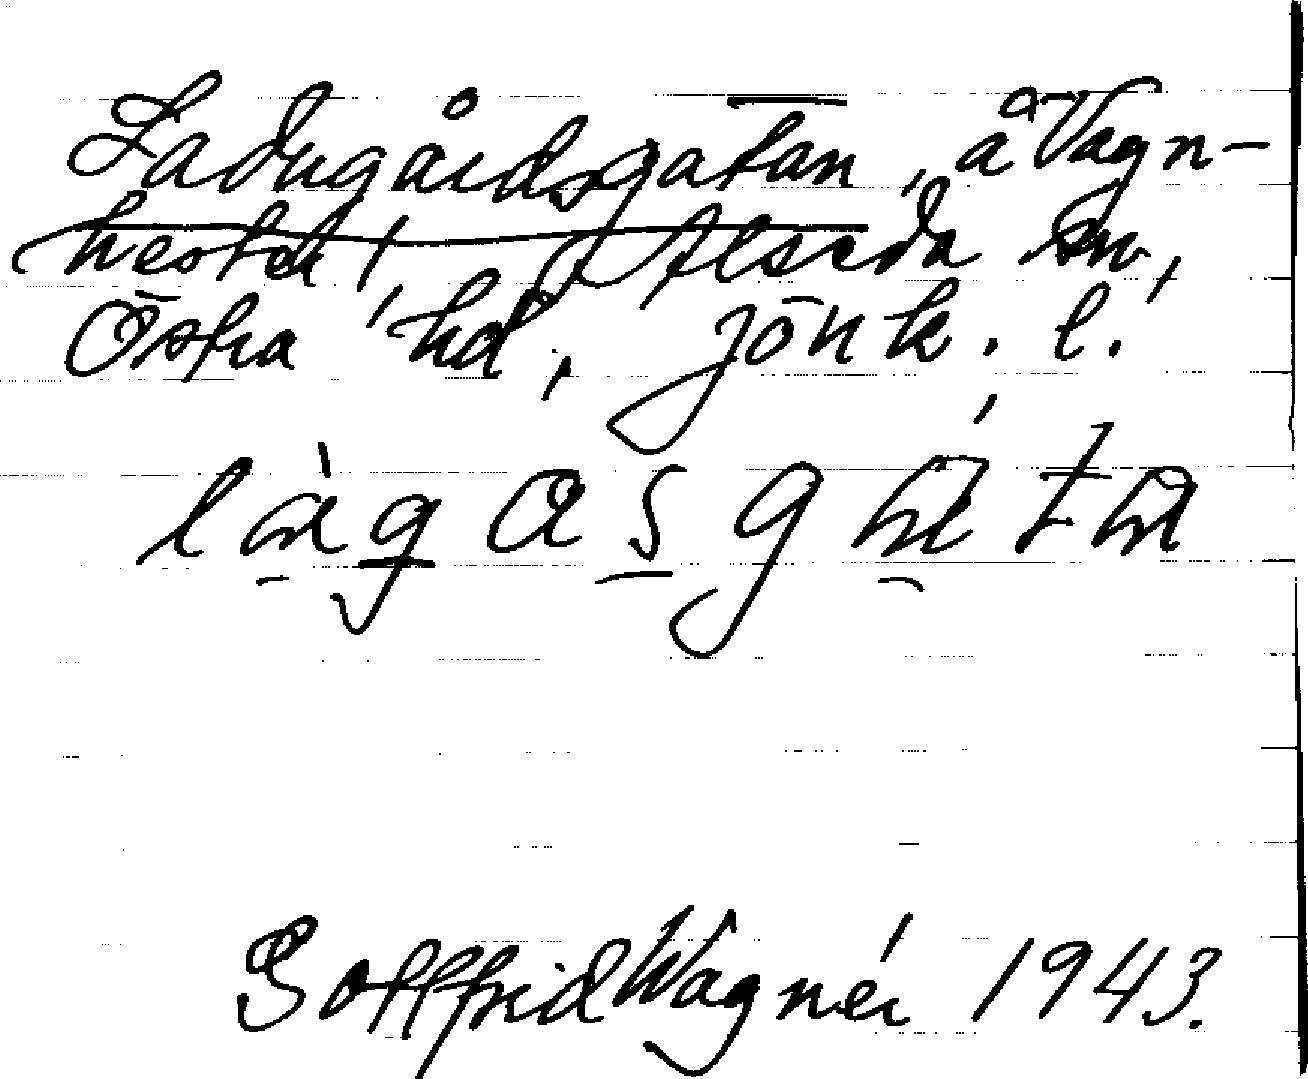 Ladugårdsgatan, å Vagn-
hester, Alseda sn,
Östra hd, Jönk. l.
Gottfrid Wagnér 1943.